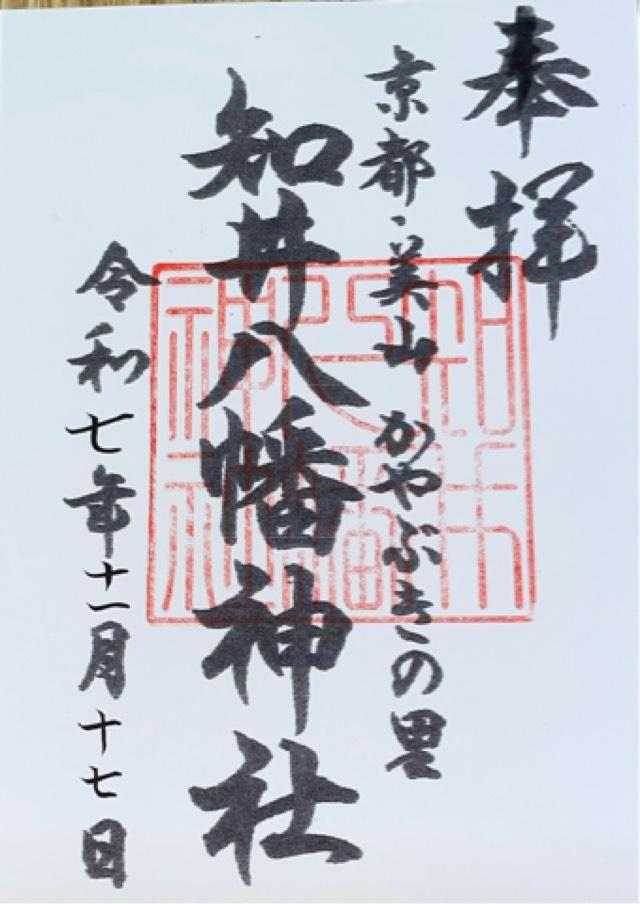 奉拝
京都・美山 かやぶきの里
知井八幡神社
令和七年十一月十七日